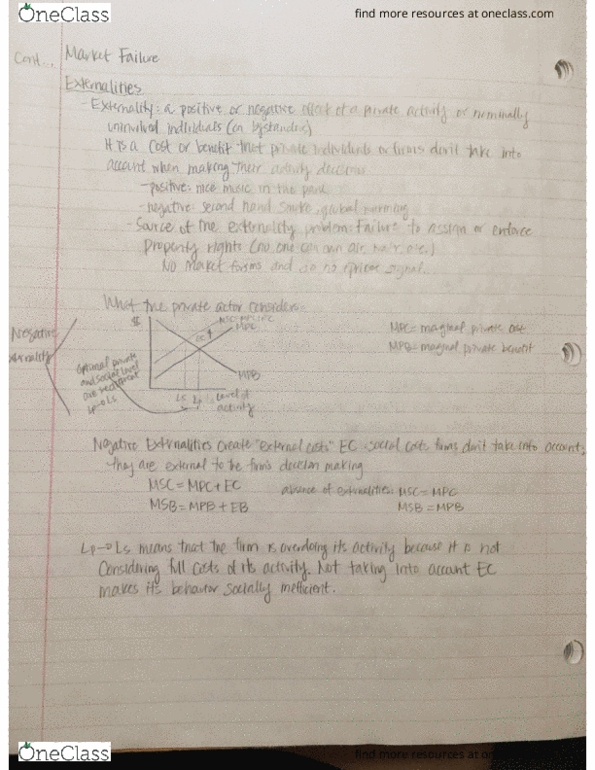 OneClass
find more resources at oneclass.com
Cont... Market Failure
Externalities
- Externality: a positive or negative effect of a private activity or nominally
uninvolved individuals (on bystanders)
It is a cost or benefit that private individuals or firms don't take into
account when making their activity decisions
- positive: nice music in the park
- negative: second hand smoke, global warming
- Source of the externality problem: failure to assign or enforce
Property rights (no one can own air, etc.)
No market forms and so no price signal..
What the private actor considers:
$
MPC
MPC = marginal private cost
Negative
MPB = marginal private benefit
optimal private
and social level
are
Lp → Ls
EC
MPB
Ls Lp Level of
activity
Negative Externalities create "external costs" EC social costs firms don't take into account,
they are external to the firm's decision making
MSC = MPC + EC absence of externalities: MSC = MPC
MSB = MPB + EB MSB = MPB
Lp → Ls means that the firm is overdoing its activity because it is not
Considering full costs of its activity. Not taking into account EC
makes its behavior socially inefficient.
OneClass
find more resources at